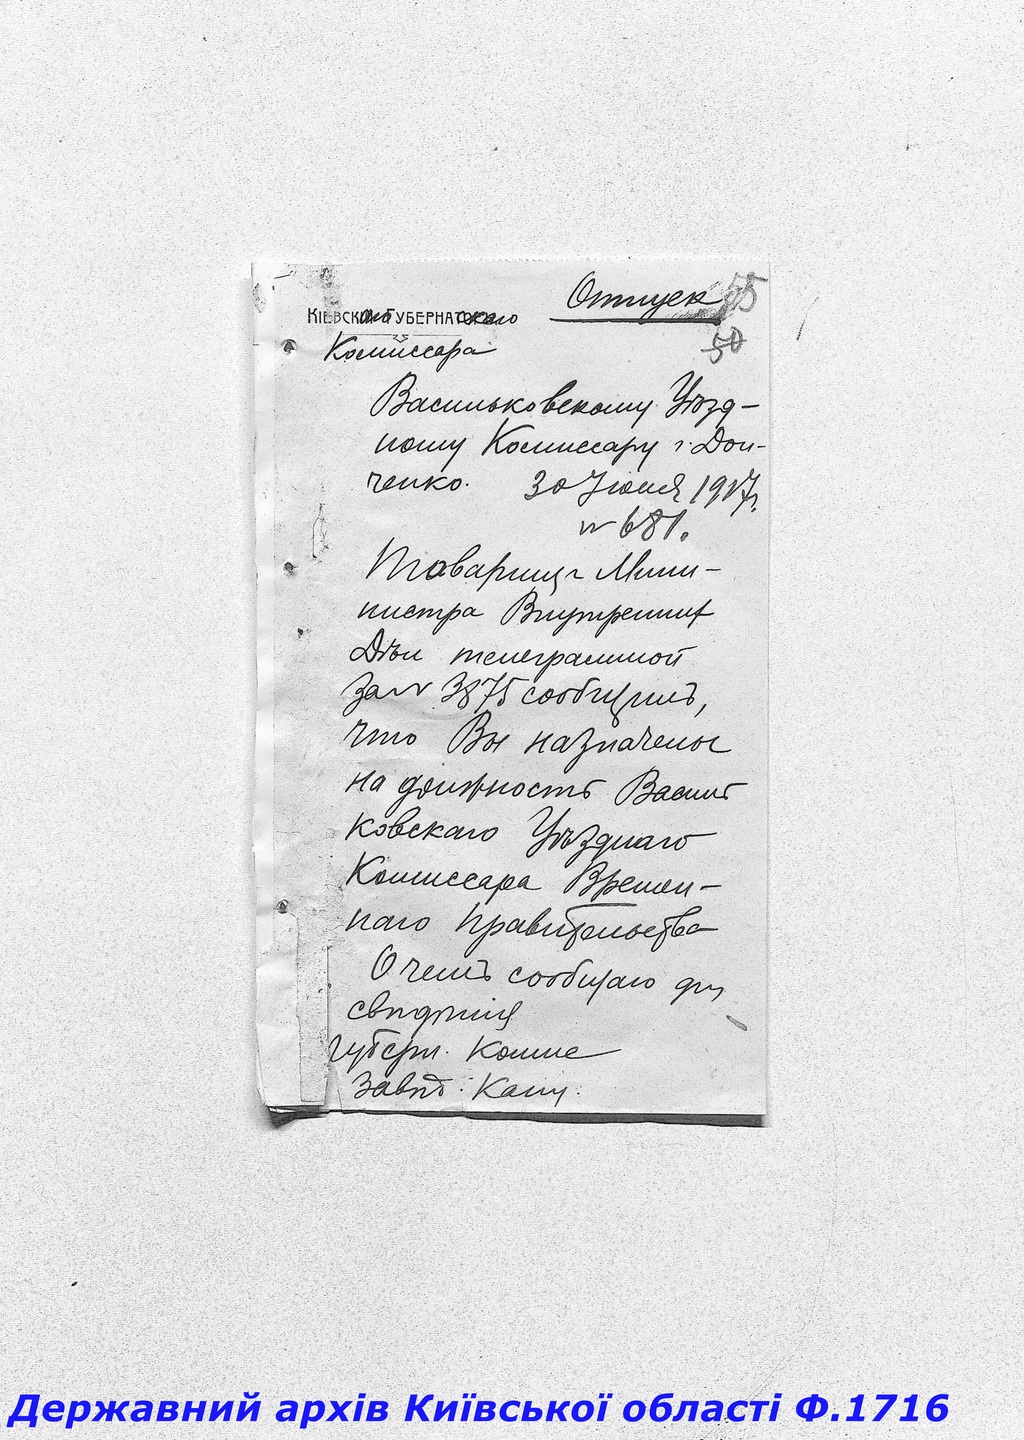 Отпуск 55
Кіевскаго Губернскаго 50
Комиссара
Васильковскому Уѣзд-
ному Комиссару г. Дон-
ченко. 30 Июня 1917 г.
№ 681.
Товарищъ Мини-
нистра Внутренних
Дѣл телеграммой
за № 3875 сообщилъ,
что Вы назначены
на должность Василь
ковскаго Уѣзднаго
Комиссара Времен-
наго Правительства
О чемъ сообщаю для
свѣдѣнія
Губерн. Комис
Завѣд. Канц.
Державний архів Київської області Ф.1716